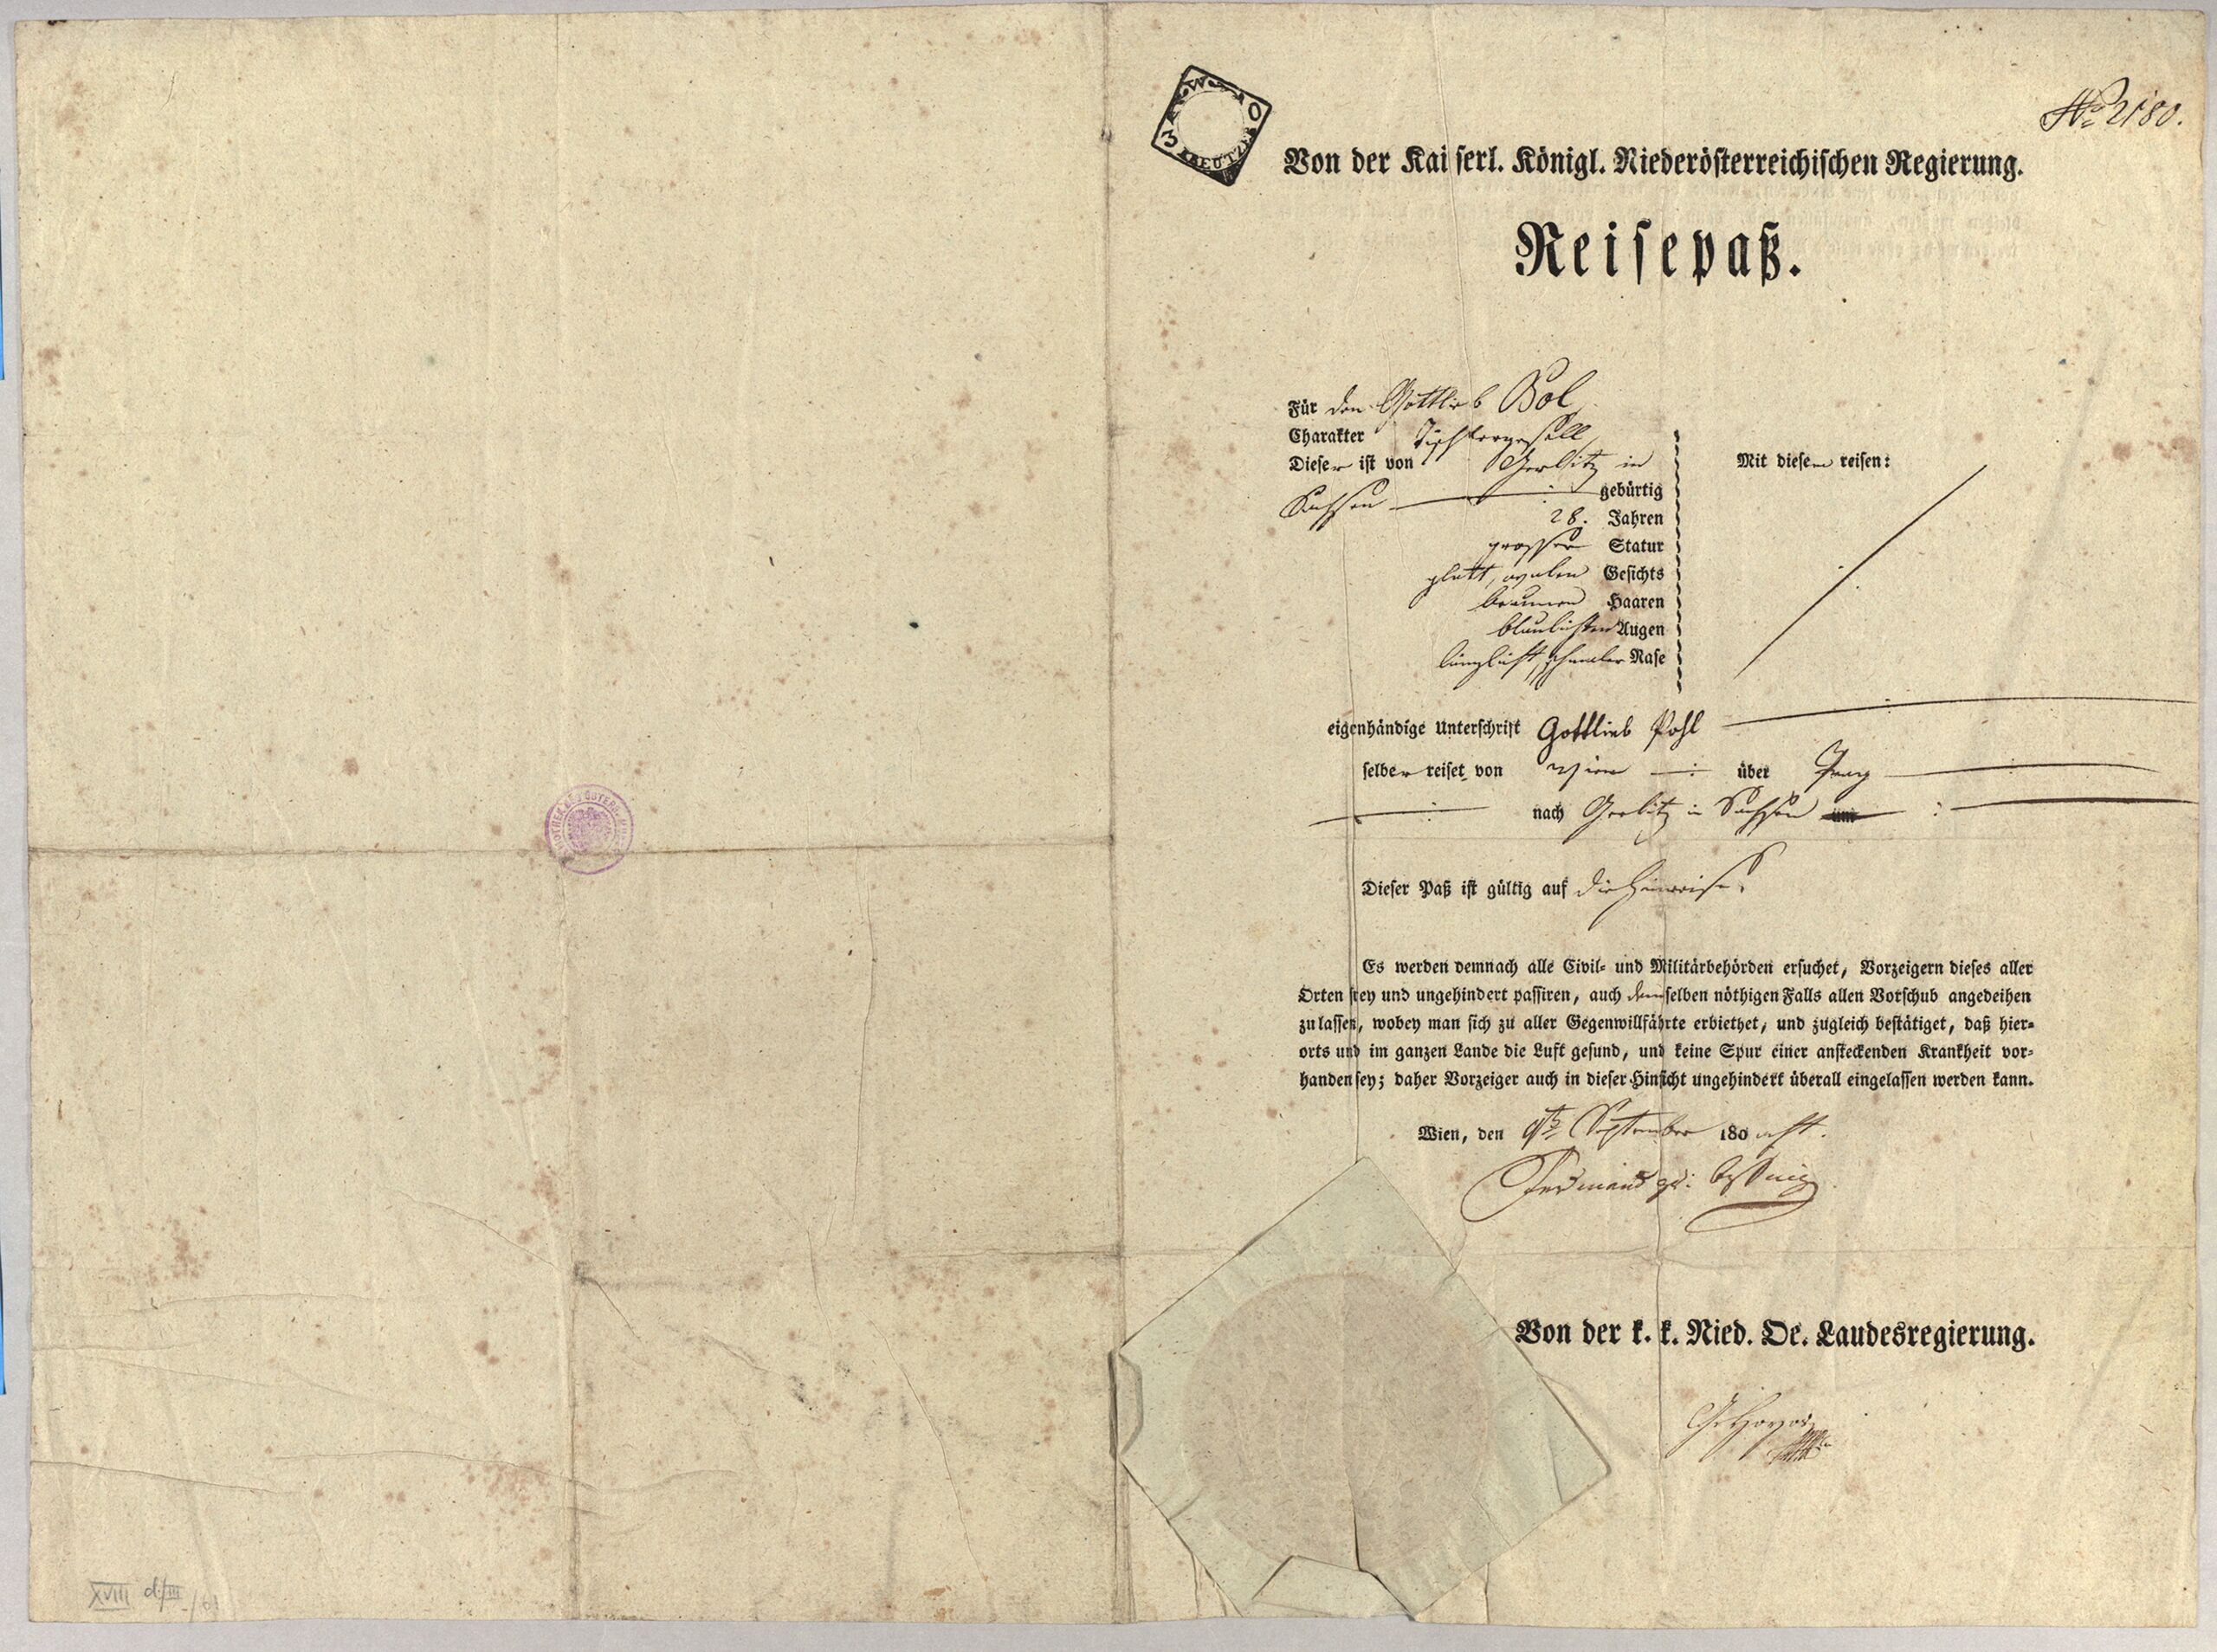 W
3 0
KREUTZER
No 2180.
Von der Kaiserl. Königl. Niederösterreichischen Regierung.
Reisepaß.
Für den Gottlieb Bol
Charakter Tischlergesell
Dieser ist von Gerlitz in
Sachsen gebürtig
28. Jahren
grosser Statur
glatt, ovalen Gesichts
braunen Haaren
blaulichten Augen
länglicht schmaler Nase
Mit diesem reisen:
eigenhändige Unterschrift Gottlieb Pohl
selber reiset von Wien über Prag
nach Gerlitz in Sachsen
Dieser Paß ist gültig auf die Hinreise.
Es werden demnach alle Civil- und Militärbehörden ersuchet, Vorzeigern dieses aller
Orten frey und ungehindert passiren, auch demselben nöthigen Falls allen Vorschub angedeihen
zu lassen, wobey man sich zu aller Gegenwillfährte erbiethet, und zugleich bestätiget, daß hier-
orts und im ganzen Lande die Luft gesund, und keine Spur einer ansteckenden Krankheit vor-
handen sey; daher Vorzeiger auch in dieser Hinsicht ungehindert überall eingelassen werden kann.
Wien, den 9ten September 180 acht.
Ferdinand
Von der k. k. Nied. Oe. Landesregierung.
XVIII d/III